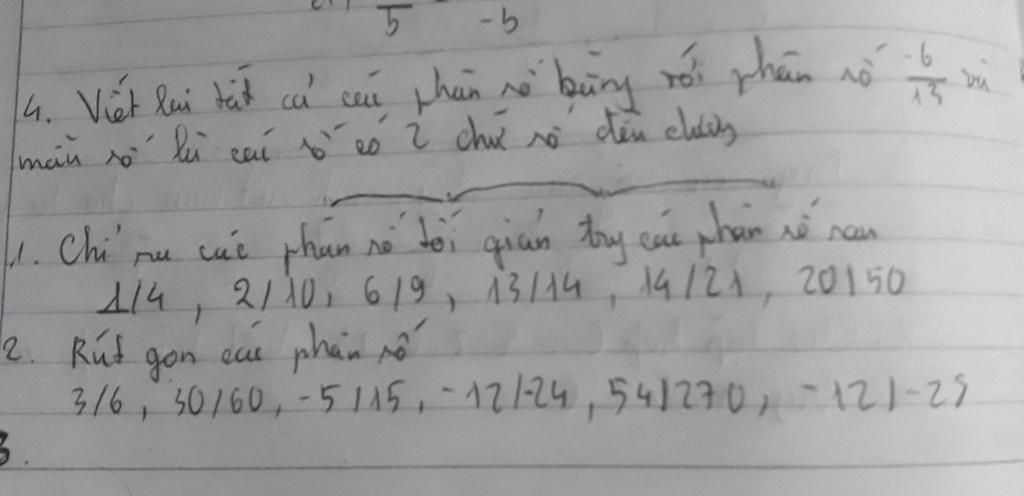 5 -b
4. Viết lại tất cả các phân số bằng với phân số -6/13 và
mẫu số là các số có 2 chữ số đều dương
1. Chỉ ra các phân số tối giản trg các phân số sau
1/4, 2/10, 6/9, 13/14, 14/21, 20/50
2. Rút gọn các phân số
3/6, 30/60, -5/15, -12/-24, 54/270, -12/-25
3.